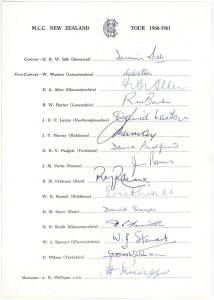 M.C.C. NEW ZEALAND TOUR 1960-1961
CAPTAIN—D. R. W. Silk (Somerset) Dennis Silk
VICE-CAPTAIN—W. Watson (Leicestershire)
D. A. Allen (Gloucestershire) Allen
R. W. Barber (Lancashire)
J. D. F. Larter (Northamptonshire) David Larter
J. T. Murray (Middlesex) Murray
D. E. V. Padgett (Yorkshire) Doug Padgett
J. M. Parks (Sussex) Jim Parks
R. M. Prideaux (Kent) Prideaux
W. E. Russell (Middlesex) Eric Russell
D. M. Sayer (Kent) David Sayer
D. R. Smith (Gloucestershire) D. R. Smith
W. J. Stewart (Warwickshire) W. J. Stewart
D. Wilson (Yorkshire) Don Wilson
MANAGER—J. H. Phillipps, O.B.E. Phillipps